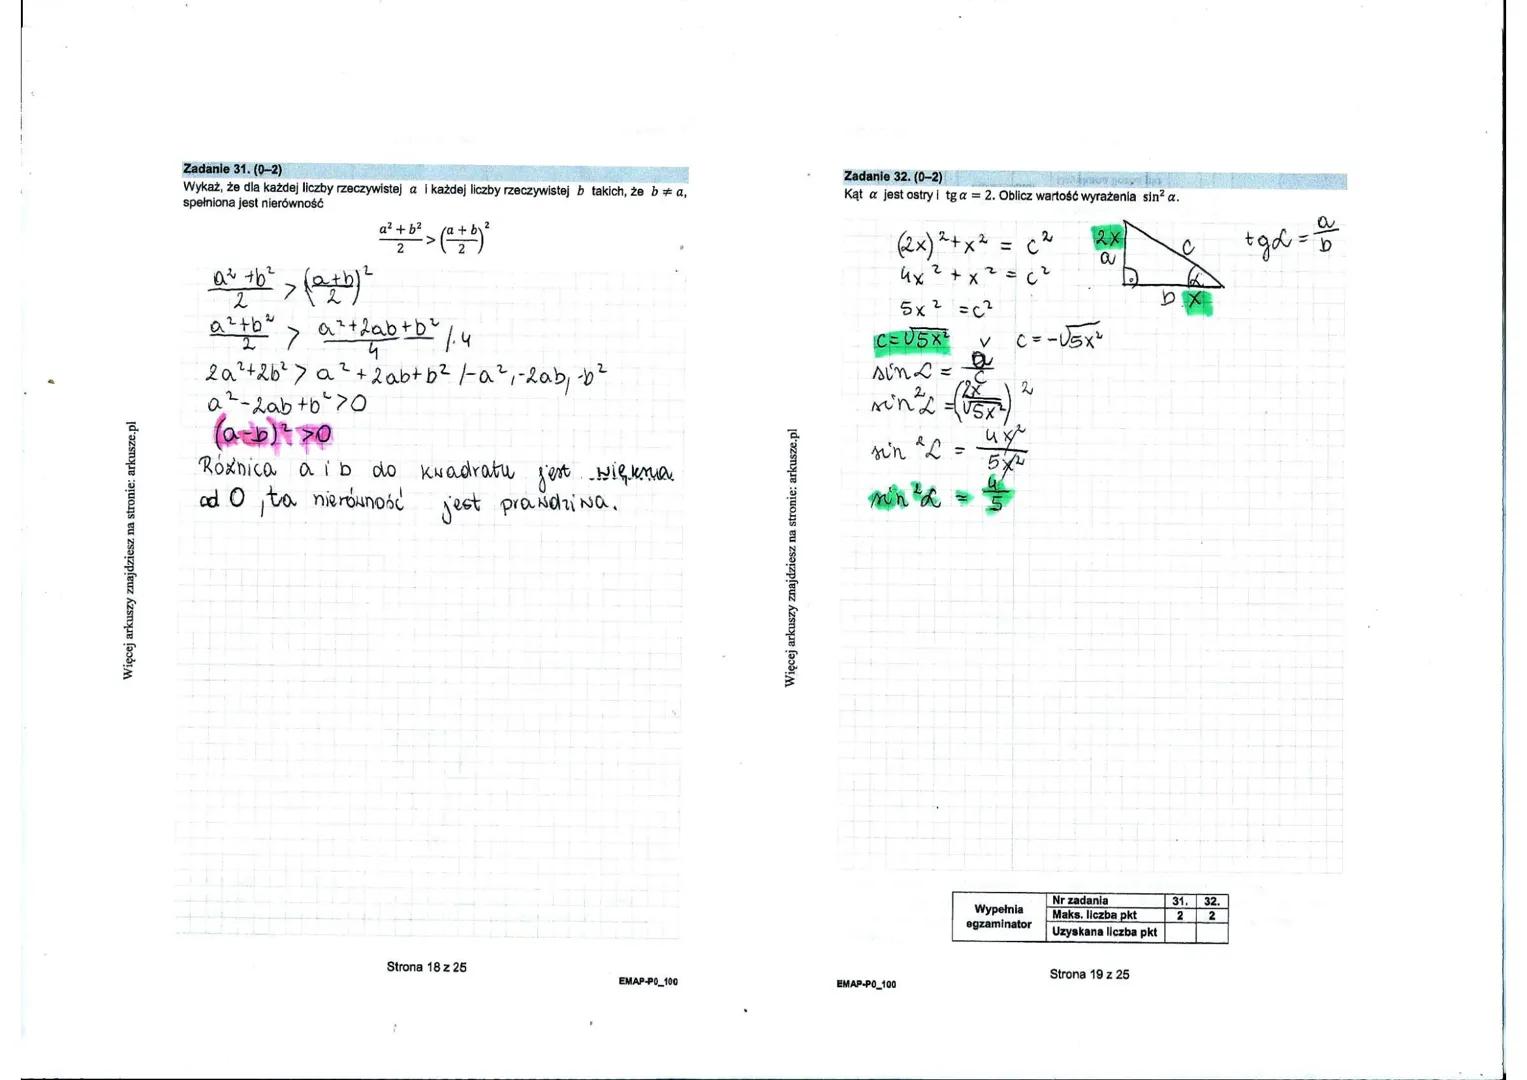 Zadanie 31. (0–2)
Wykaż, że dla każdej liczby rzeczywistej a i każdej liczby rzeczywistej b takich, że b ≠ a,
spełniona jest nierówność
(a² + b²)/2 > ((a + b)/2)²
(a² + b²)/2 > ((a+b)/2)²
(a²+b²)/2 > (a²+2ab+b²)/4 /·4
2a²+2b² > a²+2ab+b² /-a², -2ab, -b²
a²-2ab+b²>0
(a-b)²>0
Różnica a i b do kwadratu jest większa
od 0, ta nierówność jest prawdziwa.
Więcej arkuszy znajdziesz na stronie: arkusze.pl
Strona 18 z 25
EMAP-P0_100
Zadanie 32. (0–2)
Kąt α jest ostry i tg α = 2. Oblicz wartość wyrażenia sin² α.
(2x)²+x² = c²
4x² + x² = c²
5x² = c²
c=√5x² v c = -√5x²
sin α = a/c
sin² α = (2x/√5x²)²
sin² α = 4x²/5x²
sin² α = 4/5
2x
a
c
α
b x
tg α = a/b
Więcej arkuszy znajdziesz na stronie: arkusze.pl
Wypełnia
egzaminator
Nr zadania 31. 32.
Maks. liczba pkt 2 2
Uzyskana liczba pkt
Strona 19 z 25
EMAP-P0_100